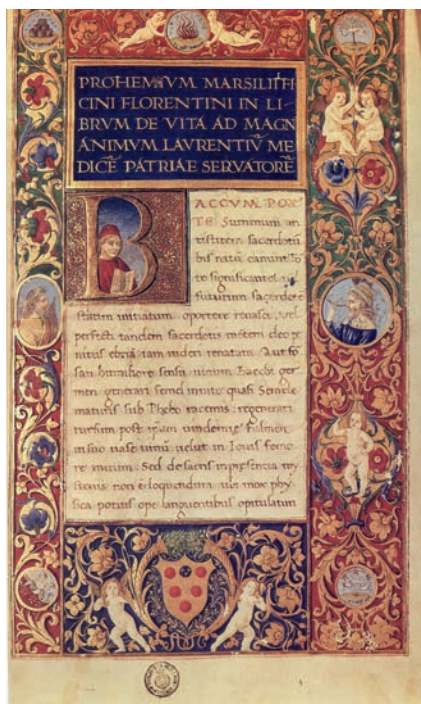 PROHEMIVM MARSILII FI
CINI FLORENTINI IN LI
BRVM DE VITA AD MAGN
ANIMVM LAVRENTIV ME
DICE PATRIAE SERVATORE
BACCVM POE
TE Summum an
tistitem sacerdotu
bis natu canunt Fo
te significantes uel
futurum sacerdote
statim initiatum oportere renasci: uel
perfecti tandem sacerdotis mētem deo pe
nitus ebriā iam uideri renatam. Aut fo
san humiliore sensu uinum Bacchi ger
men generari semel in uite quasi Semele
maturis sub Phebo racemis: regenerari
rursum post ipsum uindemie fulmen
in suo uase uinū uelut in Iouis femo
re merum. Sed de sacris in presentia my
steriis non eloquendum ubi mox phy
sica potius ope languentibus opitulatum